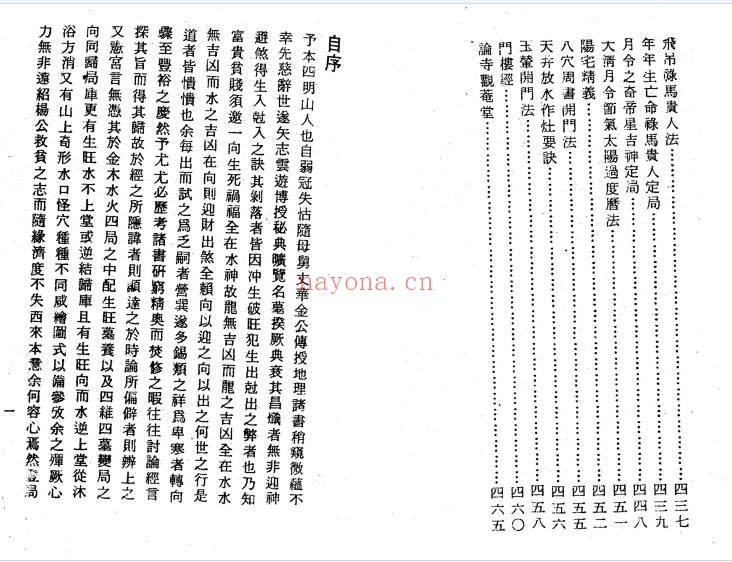 飛吊祿馬貴人法……四三七
年年生亡命祿馬貴人定局……四三九
月令之奇帝星吉神定局……四四八
大清月令節氣太陽過度曆法……四五一
陽宅精義……四五二
八穴周書開門法……四五五
天井放水作灶要訣……四五六
玉輦開門法……四五八
門樓經……四六〇
論寺觀菴堂……四六五
自序
予本四明山人也自弱冠失怙隨母舅太華金公傳授地理諸書稍窺微蘊不
幸先慈辭世遂矢志雲遊博授秘典曠覽名墓揆厥典衰其昌熾者無非迎神
避煞得生入尅入之訣其剝落者皆因冲生破旺犯生出尅出之弊者也乃知
富貴貧賤須邀一向生死禍福全在水神故龍無吉凶而龍之吉凶全在水水
無吉凶而水之吉凶在向則迎財出煞全賴向以迎之向以出之何世之行是
道者皆憒憒也余每出而試之爲乏嗣者營巽遂多錫類之祥爲卑寒者轉向
驟至豐裕之慶然予尤尤必歷考諸書研窮精奥而焚修之暇往往討論經言
探其旨而得其歸故於經之所隱諱者則顯達之於時論所偏僻者則辨上之
又慮言無憑其於金木水火四局之中配生旺墓養以及四維四墓變局之
向同歸局庫更有生旺水不上堂或逆結歸庫且有生旺向而水逆上堂從沐
浴方消又有山上奇形水口怪穴種種不同咸繪圖式以備參攷余之殫厥心
力無非遠紹楊公救貧之志而隨緣濟度不失西來本意余何容心焉然登局
一
nayona.cn